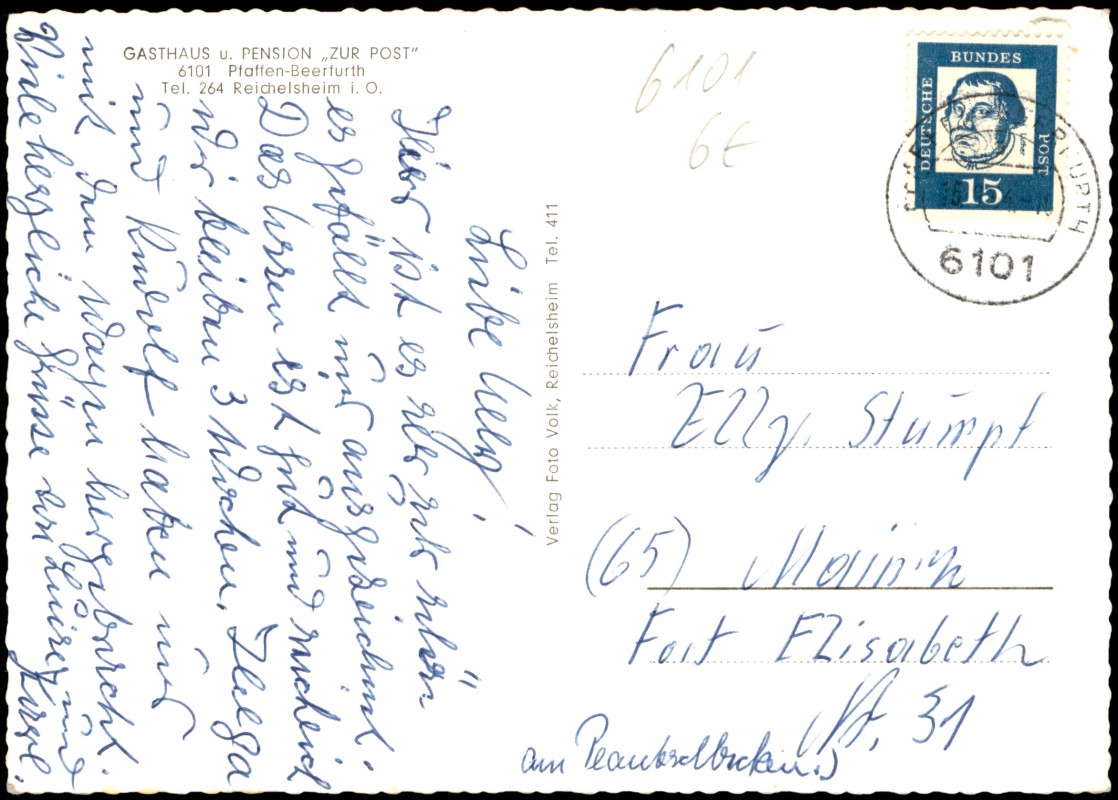 GASTHAUS u. PENSION „ZUR POST“
6101 Pfaffen-Beerfurth
Tel. 264 Reichelsheim i. O.
Liebe Elly!
Hier ist es sehr sehr schön
es gefällt mir ausgezeichnet.
Das Essen ist gut und reichlich
Wir bleiben 3 Wochen. Helga
und Rudolf haben uns
mit dem Wagen hergebracht.
Viele herzliche Grüsse von Luise und
Karl.
Verlag Foto Volk, Reichelsheim Tel. 411
6101
6€
DEUTSCHE BUNDES POST
15
6101
Frau
Elly. Stumpf
(65) Mainz
Fort Elisabeth
Nr. 31
am